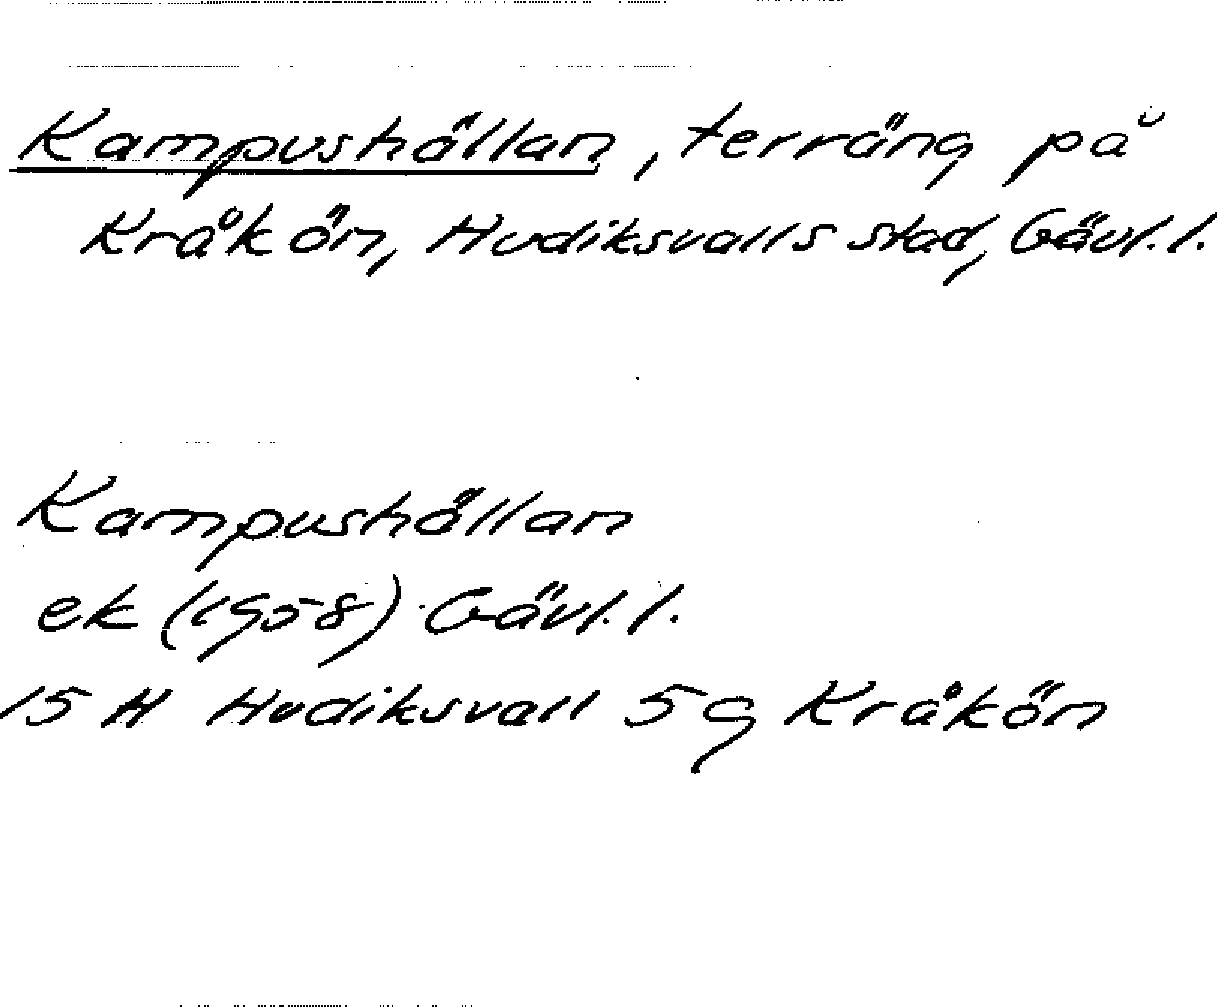 Kampushällan, terräng på
Kråkön, Hudiksvalls stad, Gävl.l.
Kampushällan
ek (1958) Gävl.l.
15 H Hudiksvall 5g Kråkön